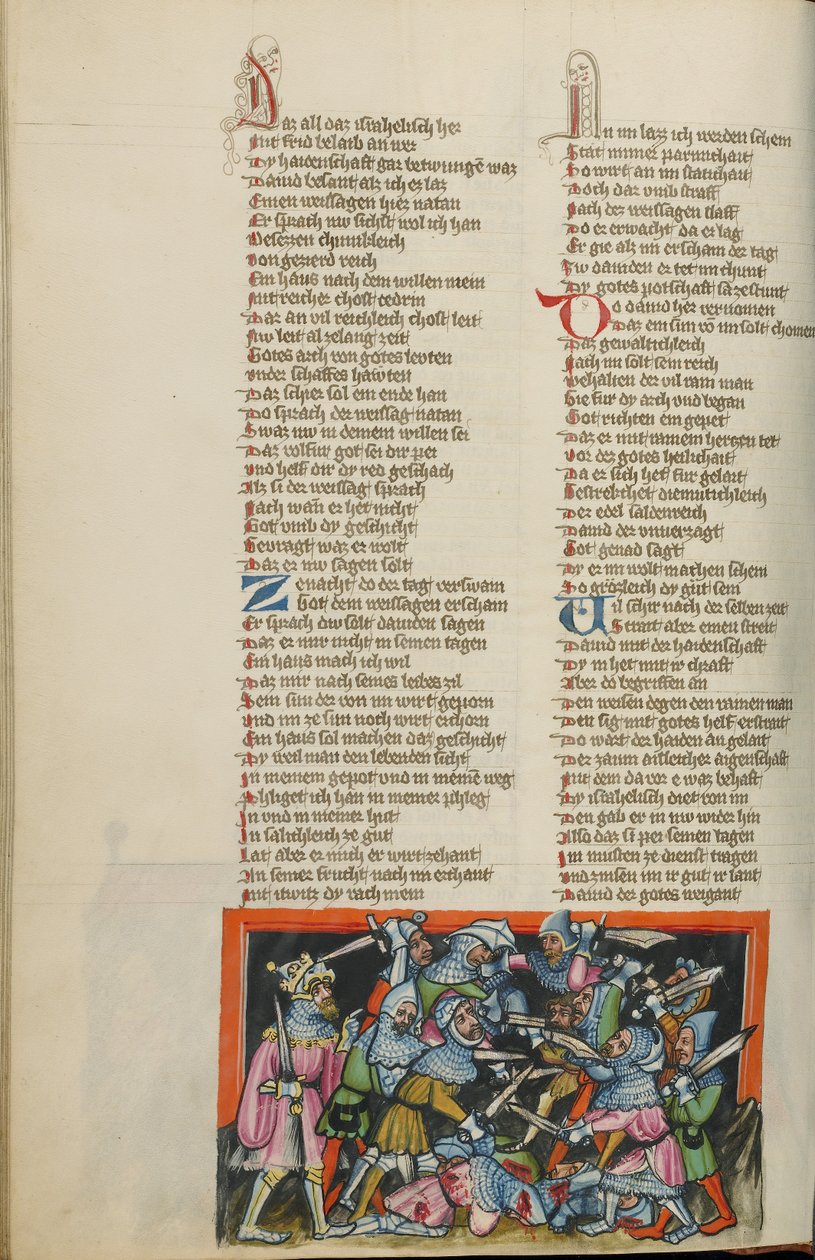 Daz all daz israhelisch her
Mit frid belaib an wer
Dy haidenschaft gar betwungē waz
Dauid besant alz ich ez laz
Einen weissagen hiez natan
Er sprach nw sichst wol ich han
Besezzen chunikleich
Von gezierd reich
Ein haus nach dem willen mein
Mit reicher chost cedrin
Dar an vil reichleich chost leit
Nw leit al zelang zeit
Gotes arch von gotes levten
Vnder schaffes hawten
Daz schier sol ein ende han
Do sprach der weissag natan
Swaz nw in deinem willen sei
Daz volfur got sei dir pei
Vnd helf dir dy red geschach
Alz si der weissag sprach
Nach wan er het nicht
Got vmb dy geschicht
Gevragt waz er wolt
Daz er nw sagen solt
Ze nacht do der tag verswain
Got dem weissagen erschain
Er sprach dw solt dauiden sagen
Daz er mir nicht in seinen tagen
Ein haus mach ich wil
Daz mir nach seines leibes zil
Sein sun der von im wirt geporn
Vnd im ze sun noch wirt erchorn
Ein haus sol machen daz geschicht
Dy weil man den lebenden sicht
In meinem gepot vnd in meinē weg
Phliget ich han in meiner phleg
In vnd in meiner hut
In sälichleich ze gut
Lat aber er mich er wirt zehant
An seiner frucht nach im erchant
Mit itwitz dy rach mein
An im lazz ich werden schein
Stät nimer parmchait
So wirt an im stätichait
Doch dar vmb straff
Nach dez weissagen klaff
Do er erwacht da er lag
Er gie alz im erschain der tag
Zw dauiden er tet im chunt
Dy gotes potschaft sa ze stunt
Do dauid her vernomen
Daz ein sun vō im solt chomen
Daz gewaltichleich
Nach im solt sein reich
Behalten der vil rain man
Gie fur dy arch vnd began
Got richten ein gepet
Daz er mit rainem hertzen tet
Vor dez gotes heilichait
Da er sich het fur gelait
Gestrekchet diemutichleich
Der edel säldenreich
Dauid der vnuerzagt
Got genad sagt
Dy er im wolt machen schein
So grözleich dy güt sein
Vil schir nach der selben zeit
Strait aber einen streit
Dauid mit der haidenschaft
Dy in het mit ir chraft
Aber do begriffen an
Den weisen degen den rainen man
Den sig mit gotes helf erstrait
Do wart der haiden an gelait
Der zaum aisleicher aigenschaft
Mit dem da vor e waz behaft
Dy israhelisch diet von im
Den gab er in nw wider hin
Also daz si pei seinen tagen
Im musten ze dienst tragen
Vnd zinsen im ir gut ir lant
Dauid der gotes weigant